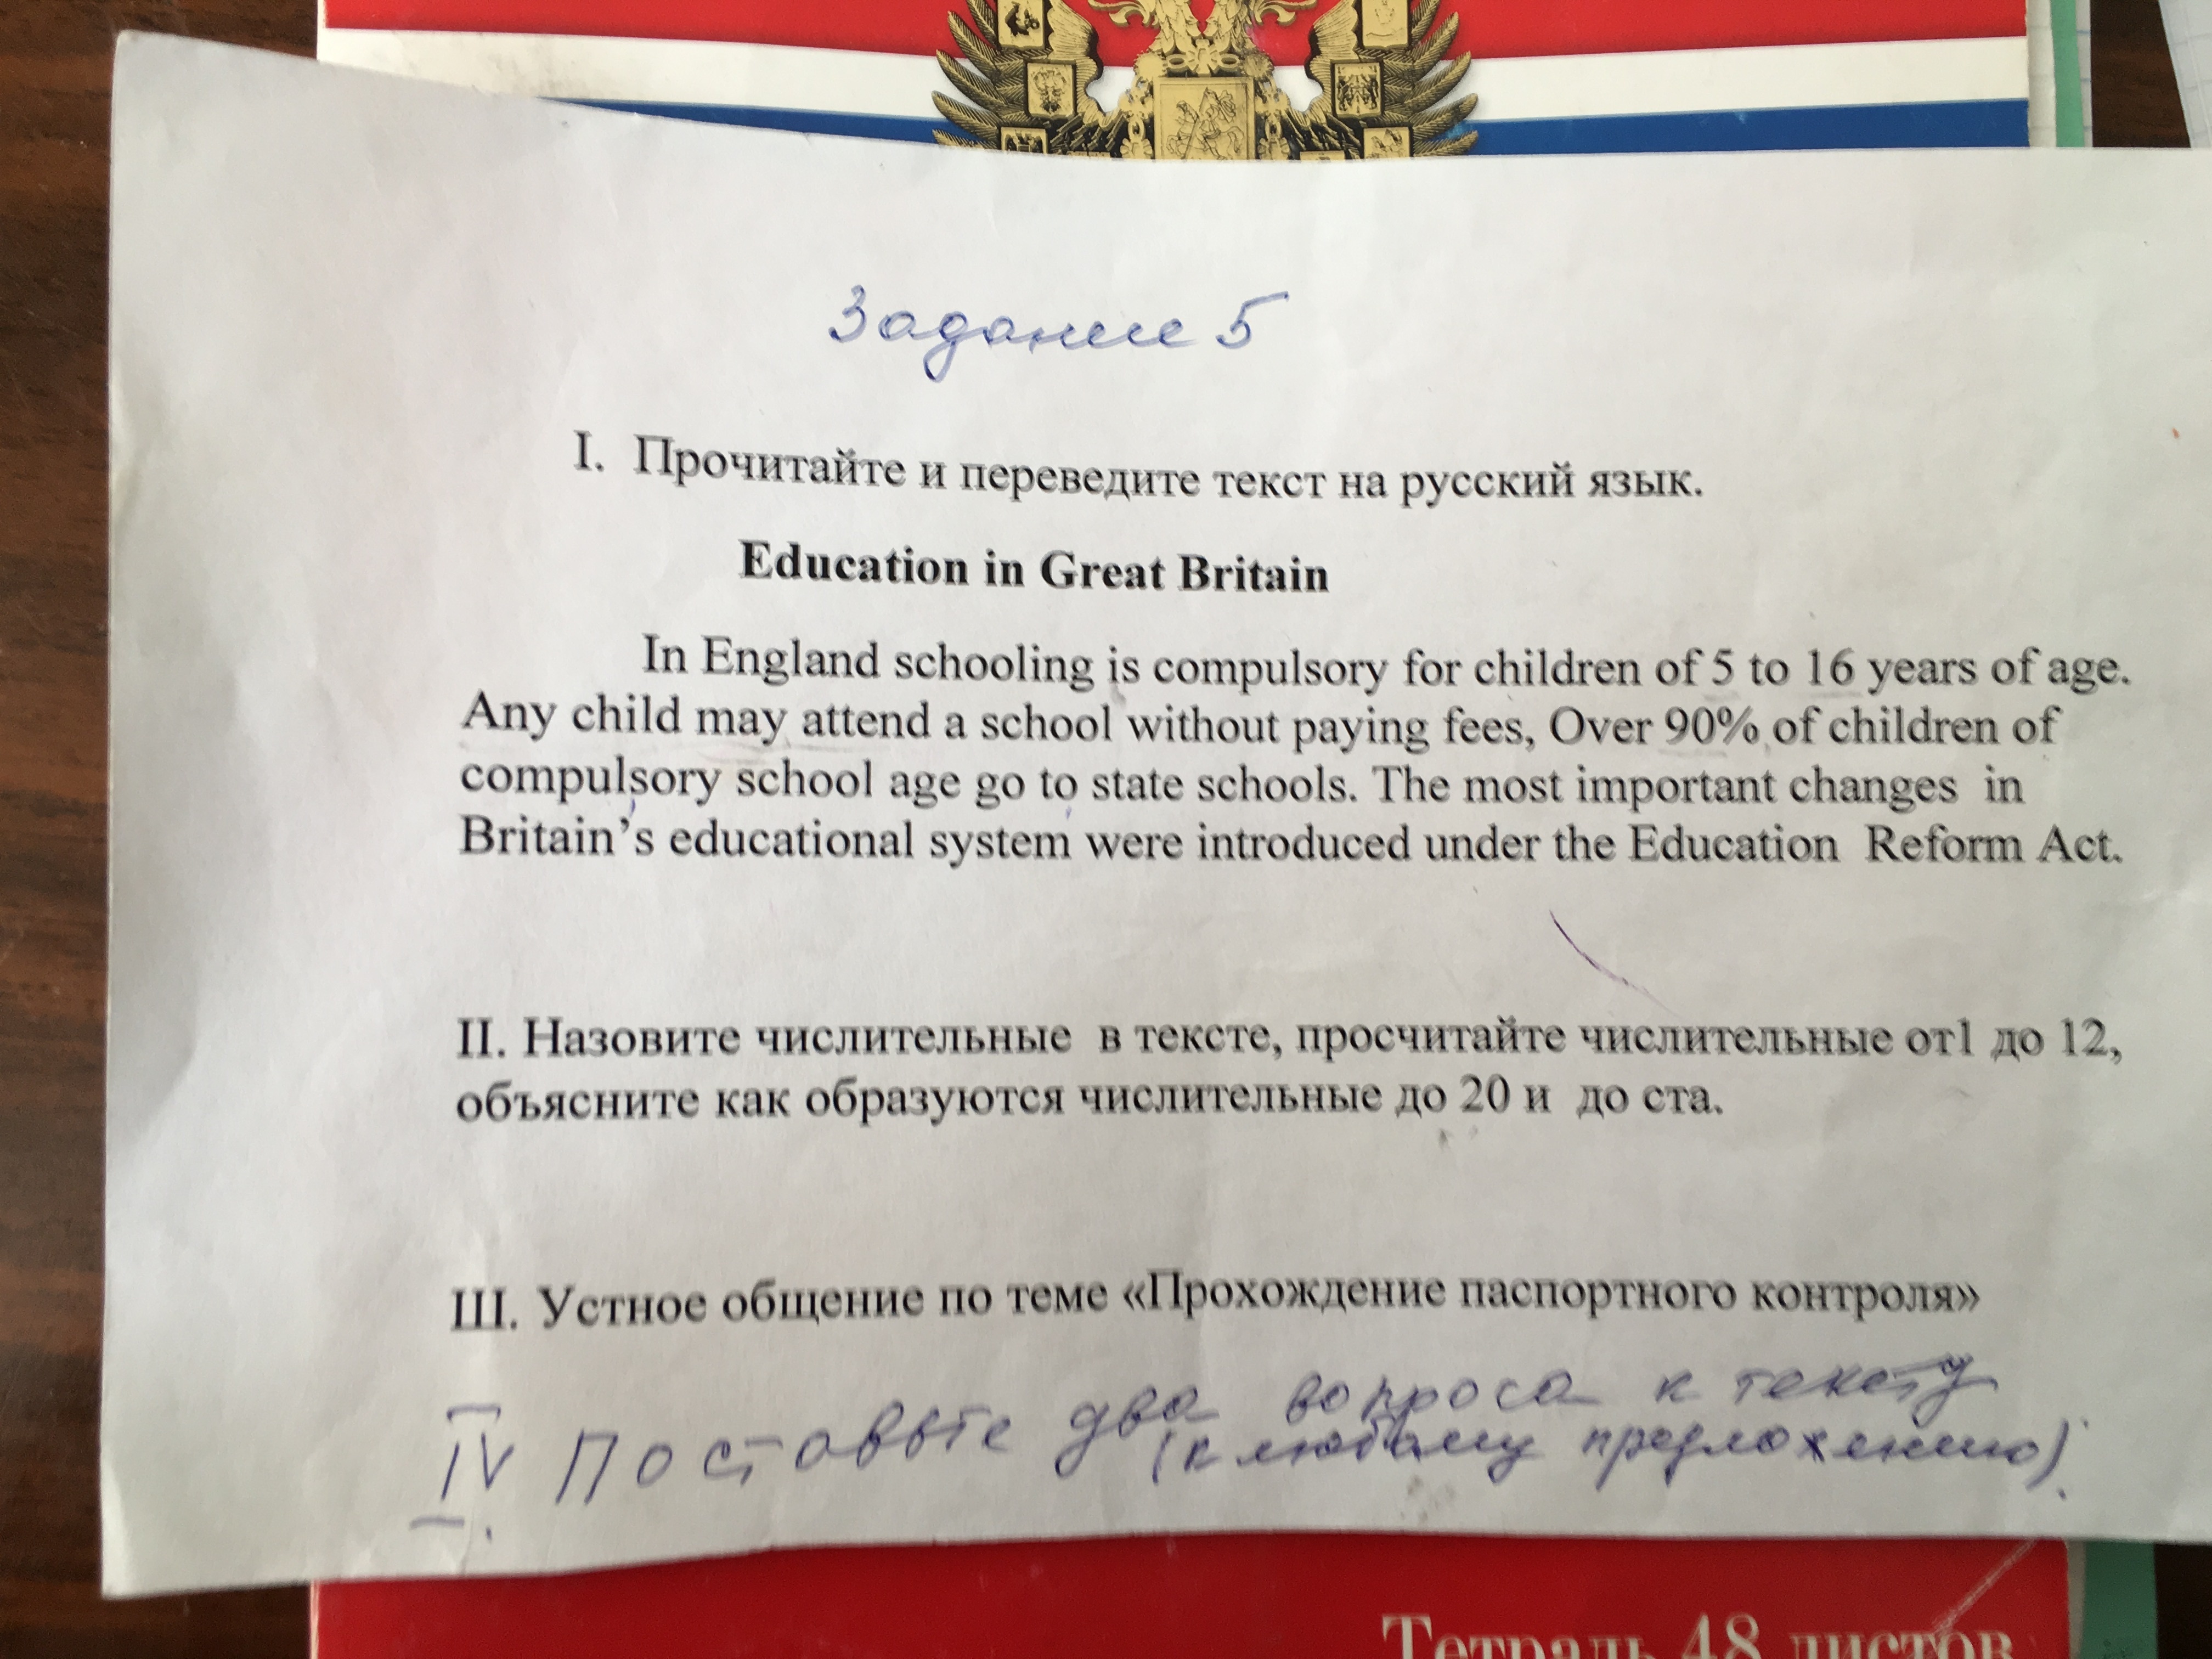 Задание 5
I. Прочитайте и переведите текст на русский язык.
Education in Great Britain
In England schooling is compulsory for children of 5 to 16 years of age.
Any child may attend a school without paying fees, Over 90% of children of
compulsory school age go to state schools. The most important changes in
Britain’s educational system were introduced under the Education Reform Act.
II. Назовите числительные в тексте, просчитайте числительные от1 до 12,
объясните как образуются числительные до 20 и до ста.
Ш. Устное общение по теме «Прохождение паспортного контроля»
IV. Поставьте два вопроса к тексту
(к любому предложению).
Тетрадь 48 листов